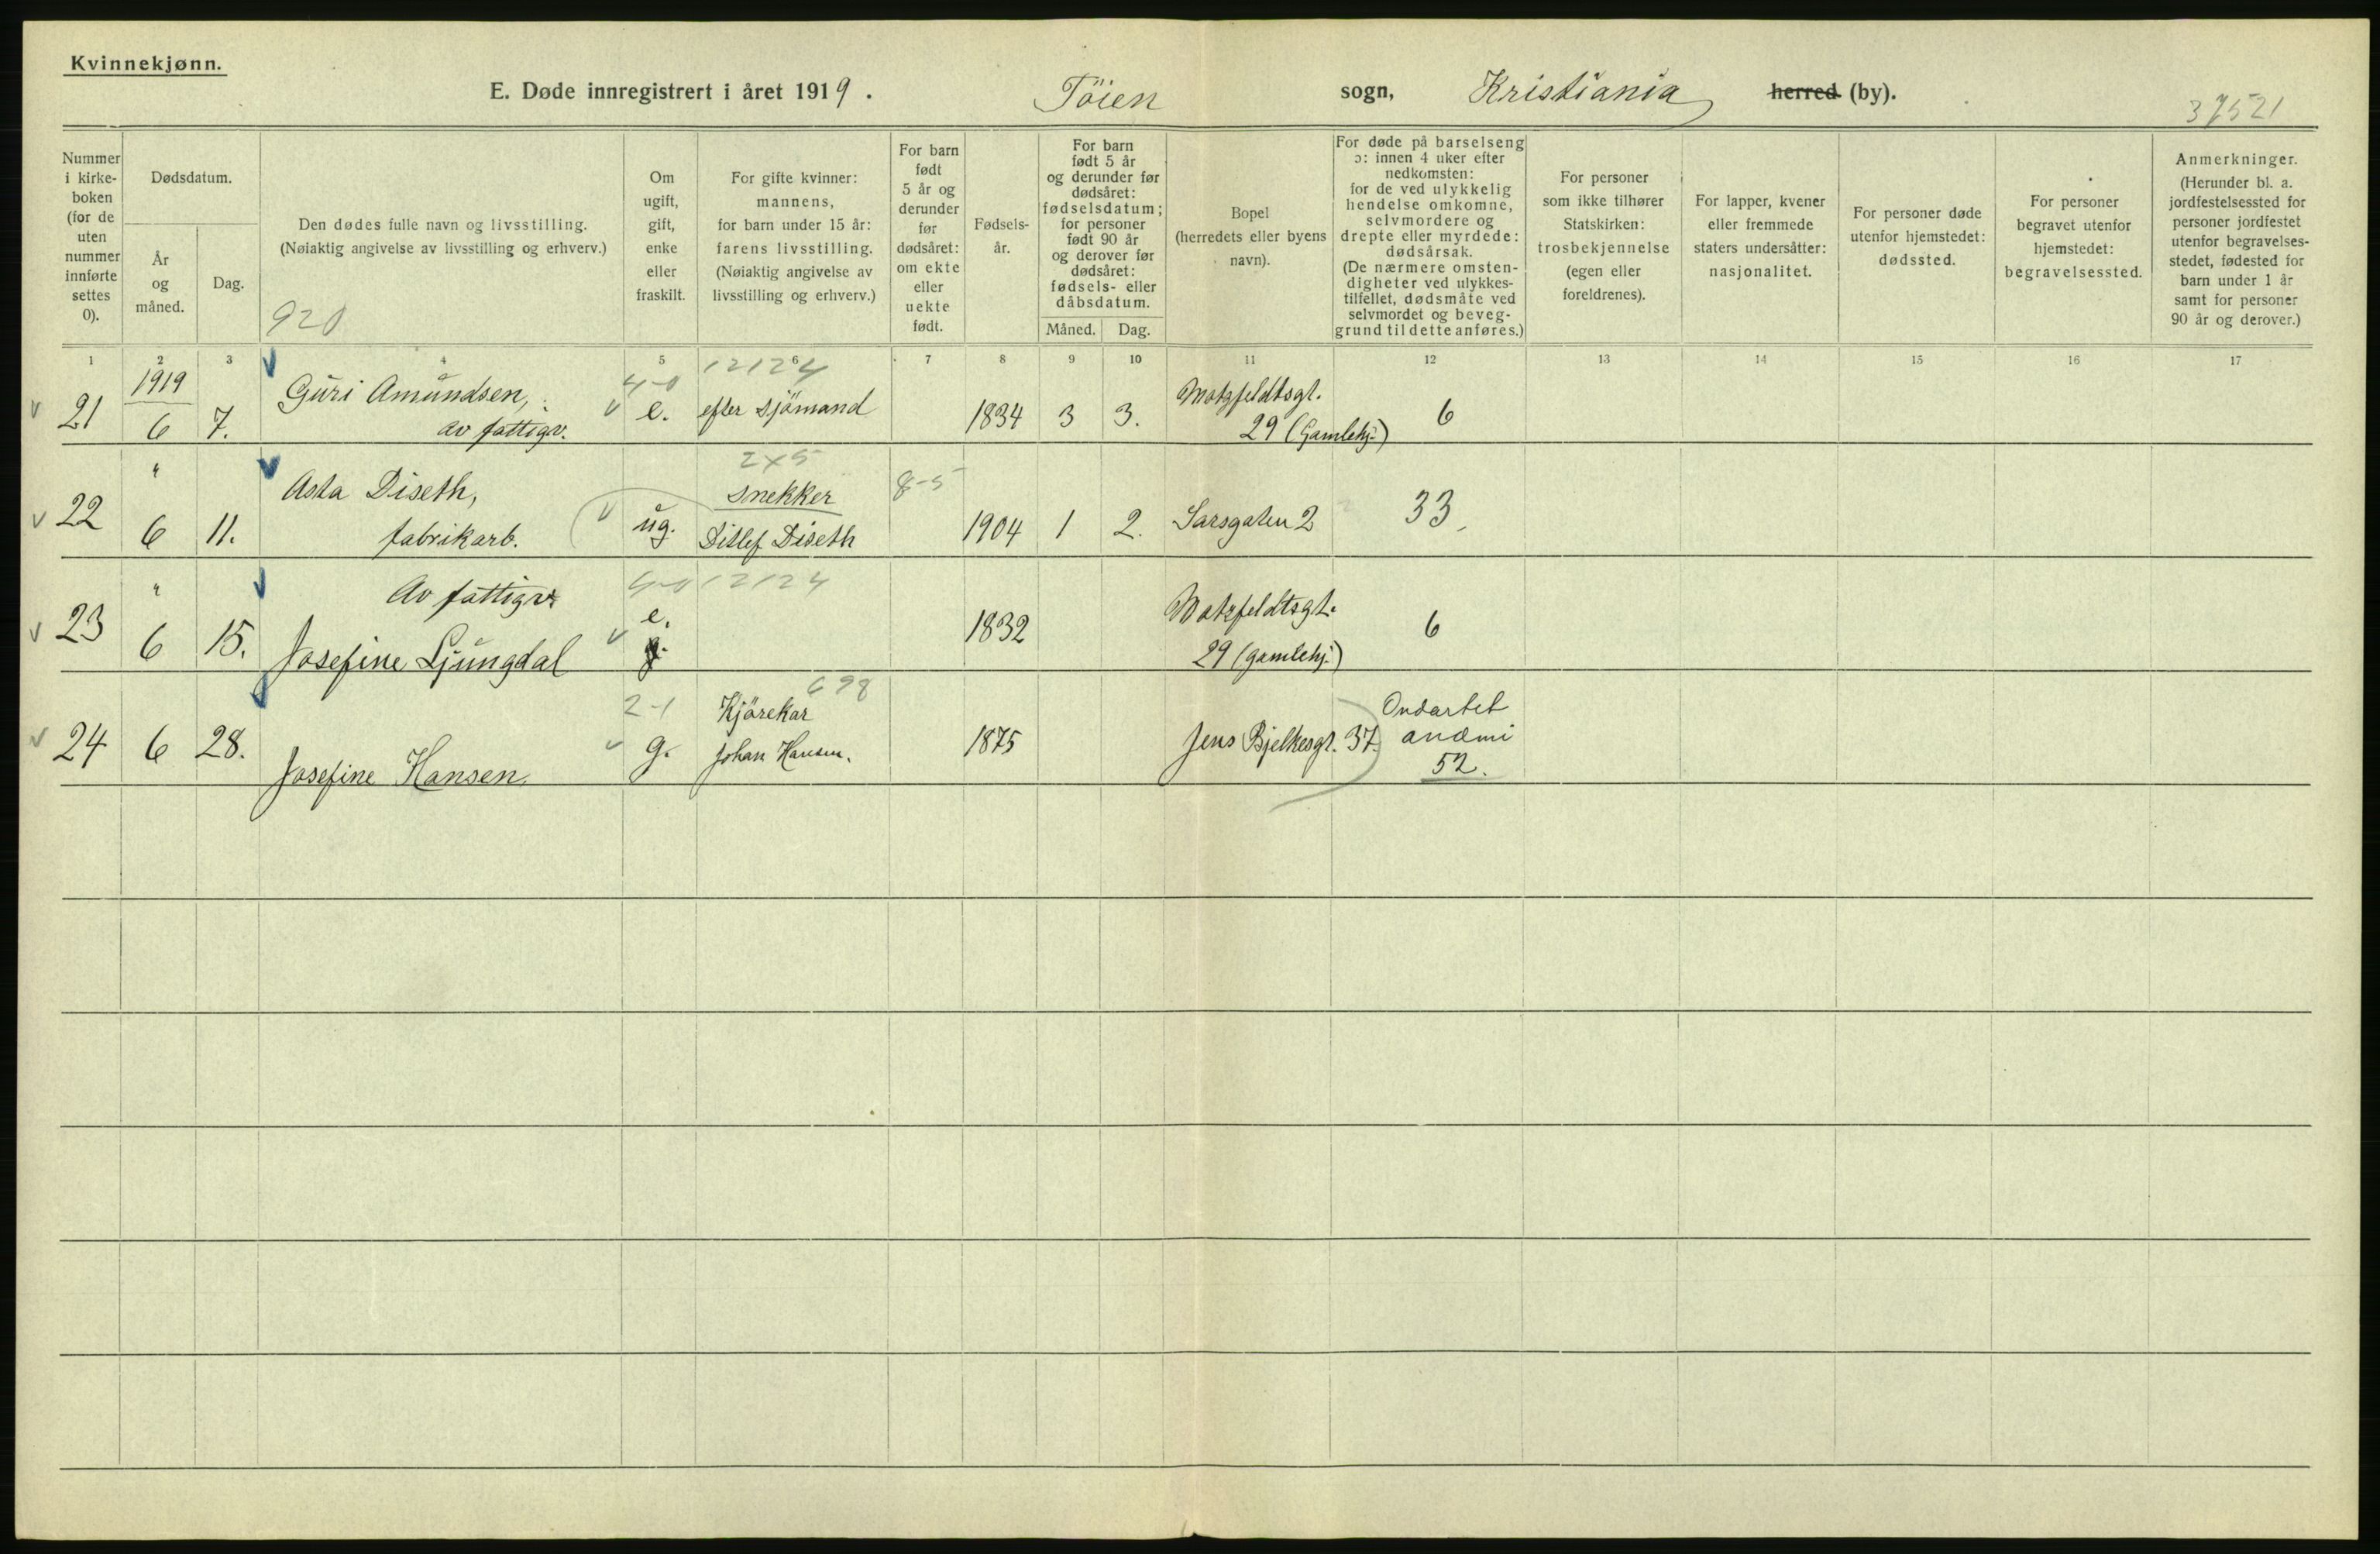 Kvinnekjønn.
E. Døde innregistrert i året 1919. Töien sogn, Kristiania herred (by).
37521
Nummer i kirke-boken (for de uten nummer innførte settes 0).
Dødsdatum.
År og måned.
Dag.
Den dødes fulle navn og livsstilling.
(Nøiaktig angivelse av livsstilling og erhverv.)
920
Om ugift, gift, enke eller fraskilt.
For gifte kvinner: mannens, for barn under 15 år: farens livsstilling. (Nøiaktig angivelse av livsstilling og erhverv.)
For barn født 5 år og derunder før dødsåret: om ekte eller uekte født.
Fødsels-år.
For barn født 5 år og derunder før dødsåret: fødselsdatum; for personer født 90 år og derover før dødsåret: fødsels- eller dåbsdatum.
Måned. Dag.
Bopel (herredets eller byens navn).
For døde på barselseng ɔ: innen 4 uker efter nedkomsten: for de ved ulykkelig hendelse omkomne, selvmordere og drepte eller myrdede: dødsårsak. (De nærmere omsten-digheter ved ulykkes-tilfellet, dødsmåte ved selvmordet og beveg-grund til dette anføres.)
For personer som ikke tilhører Statskirken: trosbekjennelse (egen eller foreldrenes).
For lapper, kvener eller fremmede staters undersåtter: nasjonalitet.
For personer døde utenfor hjemstedet: dødssted.
For personer begravet utenfor hjemstedet: begravelsessted.
Anmerkninger. (Herunder bl. a. jordfestelsessted for personer jordfestet utenfor begravelses-stedet, fødested for barn under 1 år samt for personer 90 år og derover.)
1 2 3 4 5 6 7 8 9 10 11 12 13 14 15 16 17
1919 4-0 12124
21 6 7. Guri Amundsen, e. efter sjömand 1834 3 3. Motzfeldtsgt. 6
av fattigv. 29 (Gamlehj.)
" 2x5
22 6 11. Asta Diseth, ug. snekker 8-5 1904 1 2. Sarsgaten 2 33
fabrikarb. Ditlef Diseth
" Av fattigv. 4-0 12124
23 6 15. Josefine Ljungdal e. g. 1832 Motzfeldtsgt. 6
29 (gamlehj.)
2-1 698
24 6 28. Josefine Hansen. g. Kjörekar 1875 Jens Bjelkesgt. 37. Ondartet
Johan Hansen. anæmi
52.